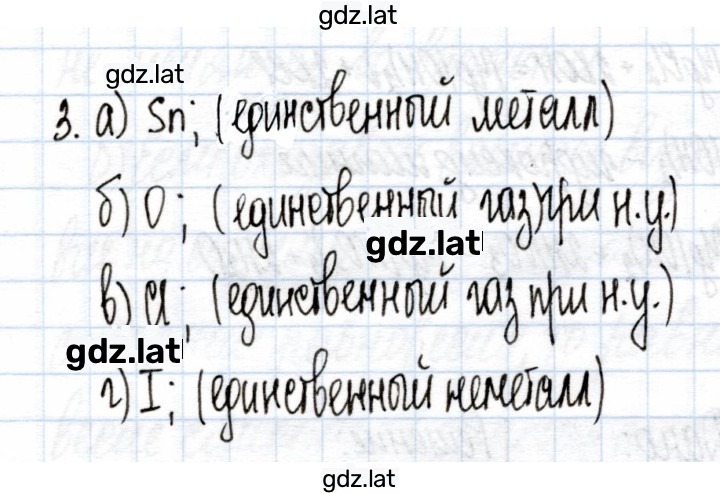 gdz.lat
gdz.lat
3. а) Sn; (единственный металл)
б) O; (единственный газ при н.у.)
gdz.lat
в) Cl; (единственный газ при н.у.)
gdz.lat
г) I; (единственный неметалл)
gdz.lat